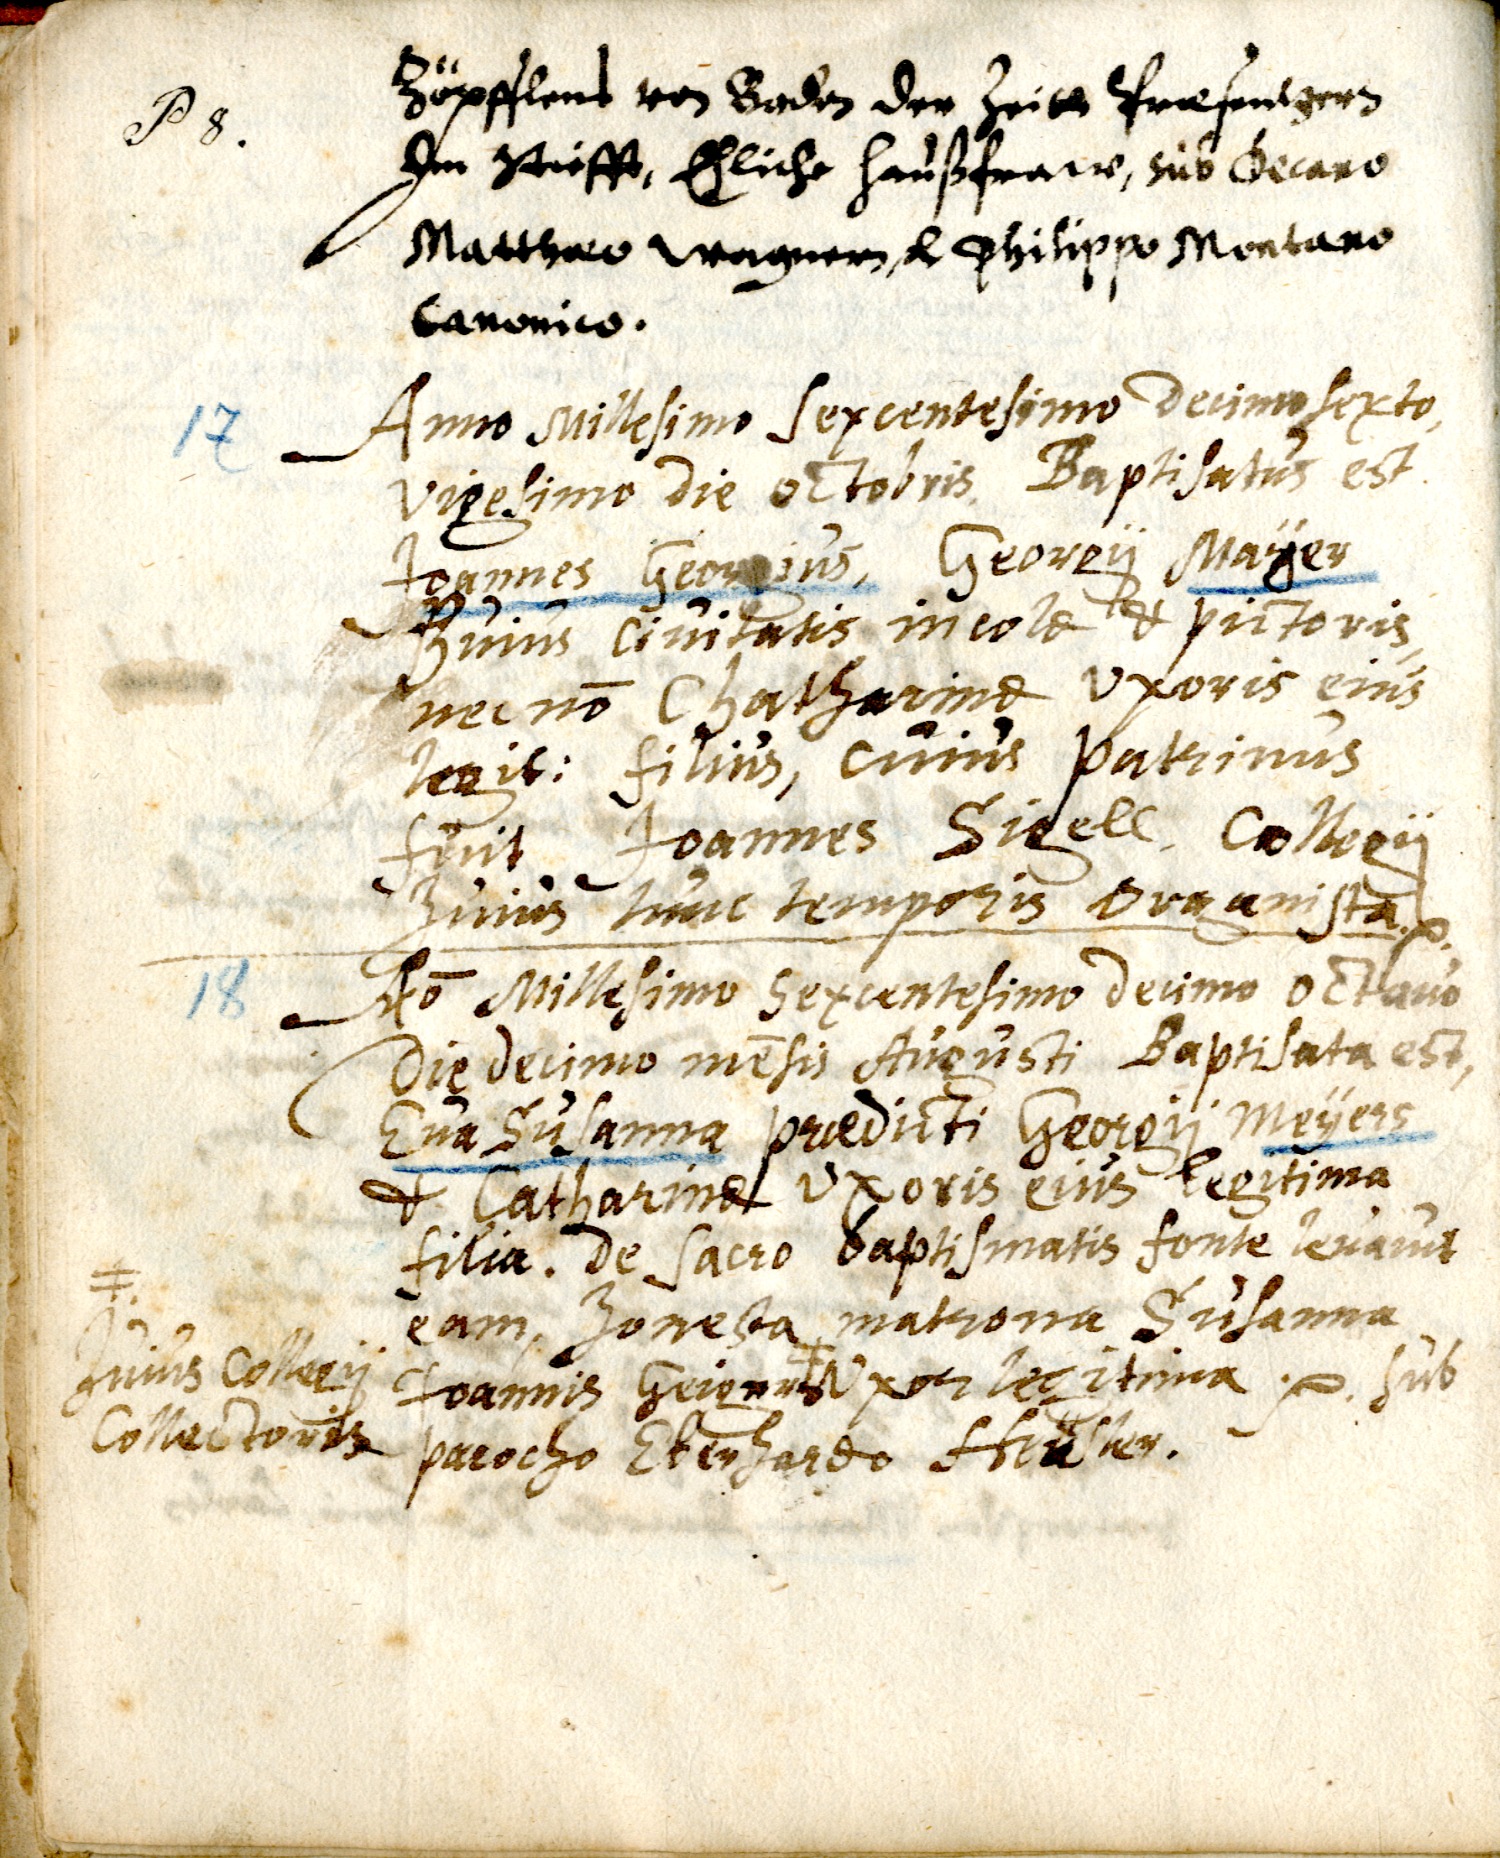 P 8.
Zöpfflens von Baden der Zeitt Præsentzern
Im Stiefft, Ehliche haußfraw, sub Decano
Matthæo Wagnern, & Philippo Montano
Canonico.
17
Anno Millesimo Sexcentesimo Decimo sexto,
vigesimo die octobris. Baptisatus est
Joannes Georgius, Georgij Mayer
Huius Ciuitatis incolæ & pictoris,
nec nō Chatharinæ Vxoris eius
legit: filius, cuius patrinus
fuit Joannes Sigell. Collegij
Huius tunc temporis Organista.
18
Aō Millesimo Sexcentesimo decimo octauo
Die decimo mēsis Augusti Baptisata est,
Eua Susanna prædicti Georgij Meyers
& Catharinæ Vxoris eius legitima
filia. De sacro baptismatis fonte leuauit
eam, Honesta matrona Susanna
Joannis Vxor legitima. sub
parocho Eberhardo
‡.
Huius Collegij
Collectoris